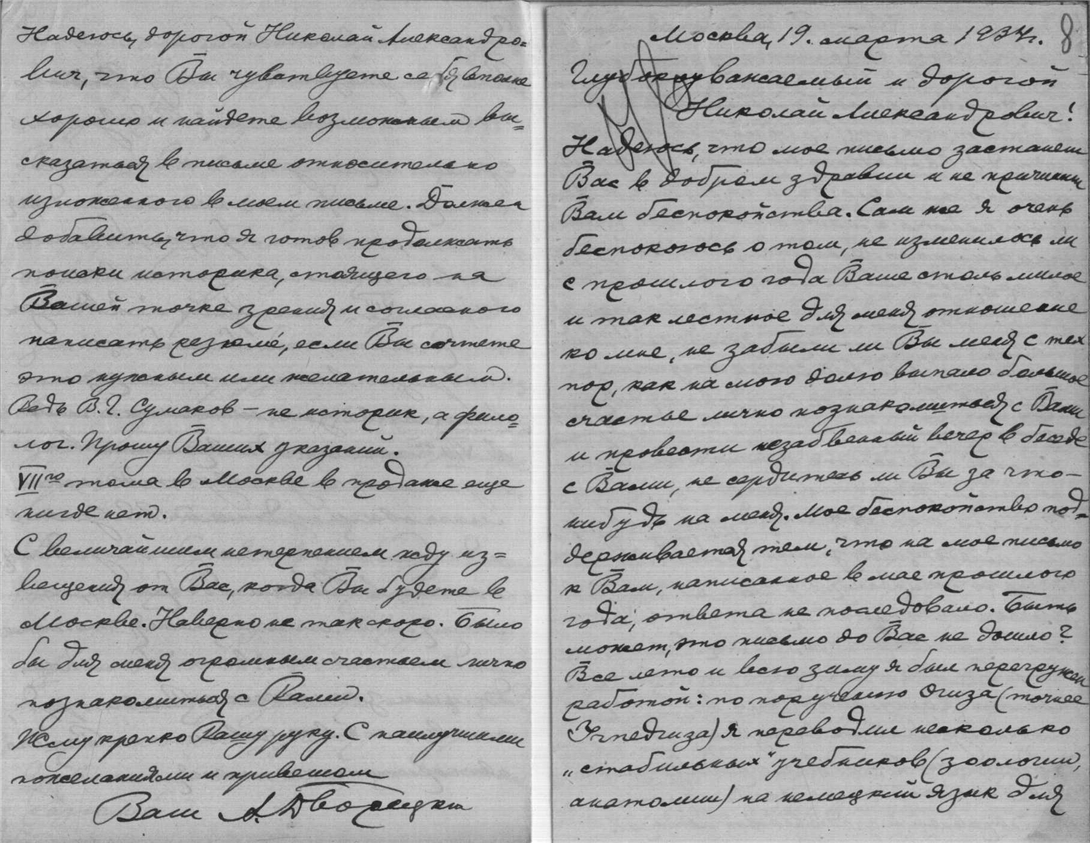 Надеюсь, дорогой Николай Александро=
вич, что Вы чувствуете себя вполне
хорошо и найдете возможным вы=
сказаться в письме относительно
изложенного в моем письме. Должен
добавить, что я готов продолжать
поиски историка, стоящего на
Вашей точке зрения и согласного
написать резюме, если Вы сочтете
это нужным или желательным.
Ведь В.Г. Сумаков – не историк, а фило=
лог. Прошу Ваших указаний.
VIIго тома в Москве в продаже еще
нигде нет.
С величайшим нетерпением жду из=
вещения от Вас, когда Вы будете в
Москве. Наверно не так скоро. Было
бы для меня огромным счастьем лично
познакомиться с Вами.
Жму крепко Вашу руку. С наилучшими
пожеланиями и приветом
Ваш А. Дворецкий
8
Москва, 19. марта 1934г.
Глубокоуважаемый и дорогой
Николай Александрович!
Надеюсь, что мое письмо застанет
Вас в добром здравии и не причинит
Вам беспокойства. Сам же я очень
беспокоюсь о том, не изменилось ли
с прошлого года Ваше столь милое
и так лестное для меня отношение
ко мне, не забыли ли Вы меня с тех
пор, как на мою долю выпало большое
счастье лично познакомиться с Вами
и провести незабвенный вечер в беседе
с Вами, не сердитесь ли Вы за что-
нибудь на меня. Мое беспокойство под=
держивается тем, что на мое письмо
к Вам, написанное в мае прошлого
года, ответа не последовало. Быть
может, это письмо до Вас не дошло?
Все лето и всю зиму я был перегружен
работой: по поручению Огиза (точнее
Учпедгиза) я переводил несколько
„стабильных" учебников (зоологии,
анатомии) на немецкий язык для